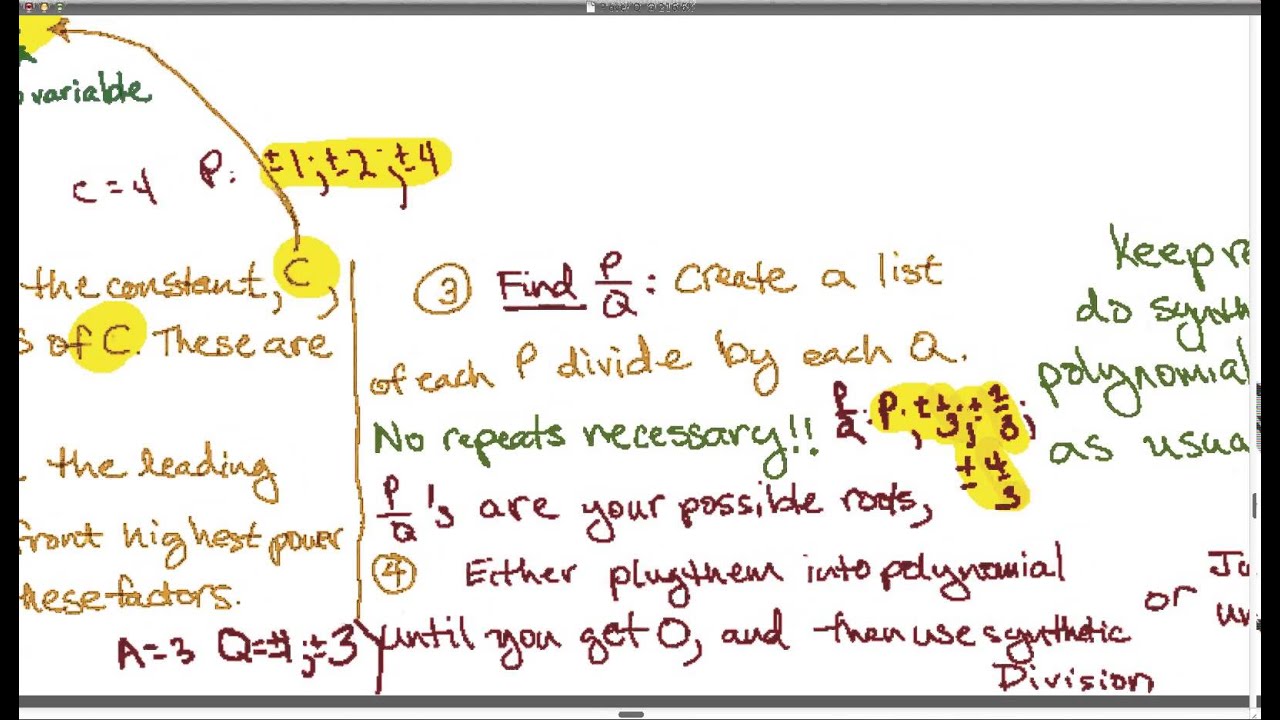 variable
C = 4 P: ±1; ±2; ±4
the constant, C,
of C. These are
the leading
front highest power
these factors.
A=3 Q=±1; ±3
③ Find P/Q: Create a list
of each P divide by each Q.
No repeats necessary!!
P/Q: P, ±1/3; ±2/3;
±4/3
P/Q's are your possible roots,
④ Either plug them into polynomial
until you get 0, and then use synthetic
Division
or
keep
do synth
polynomial
as usua